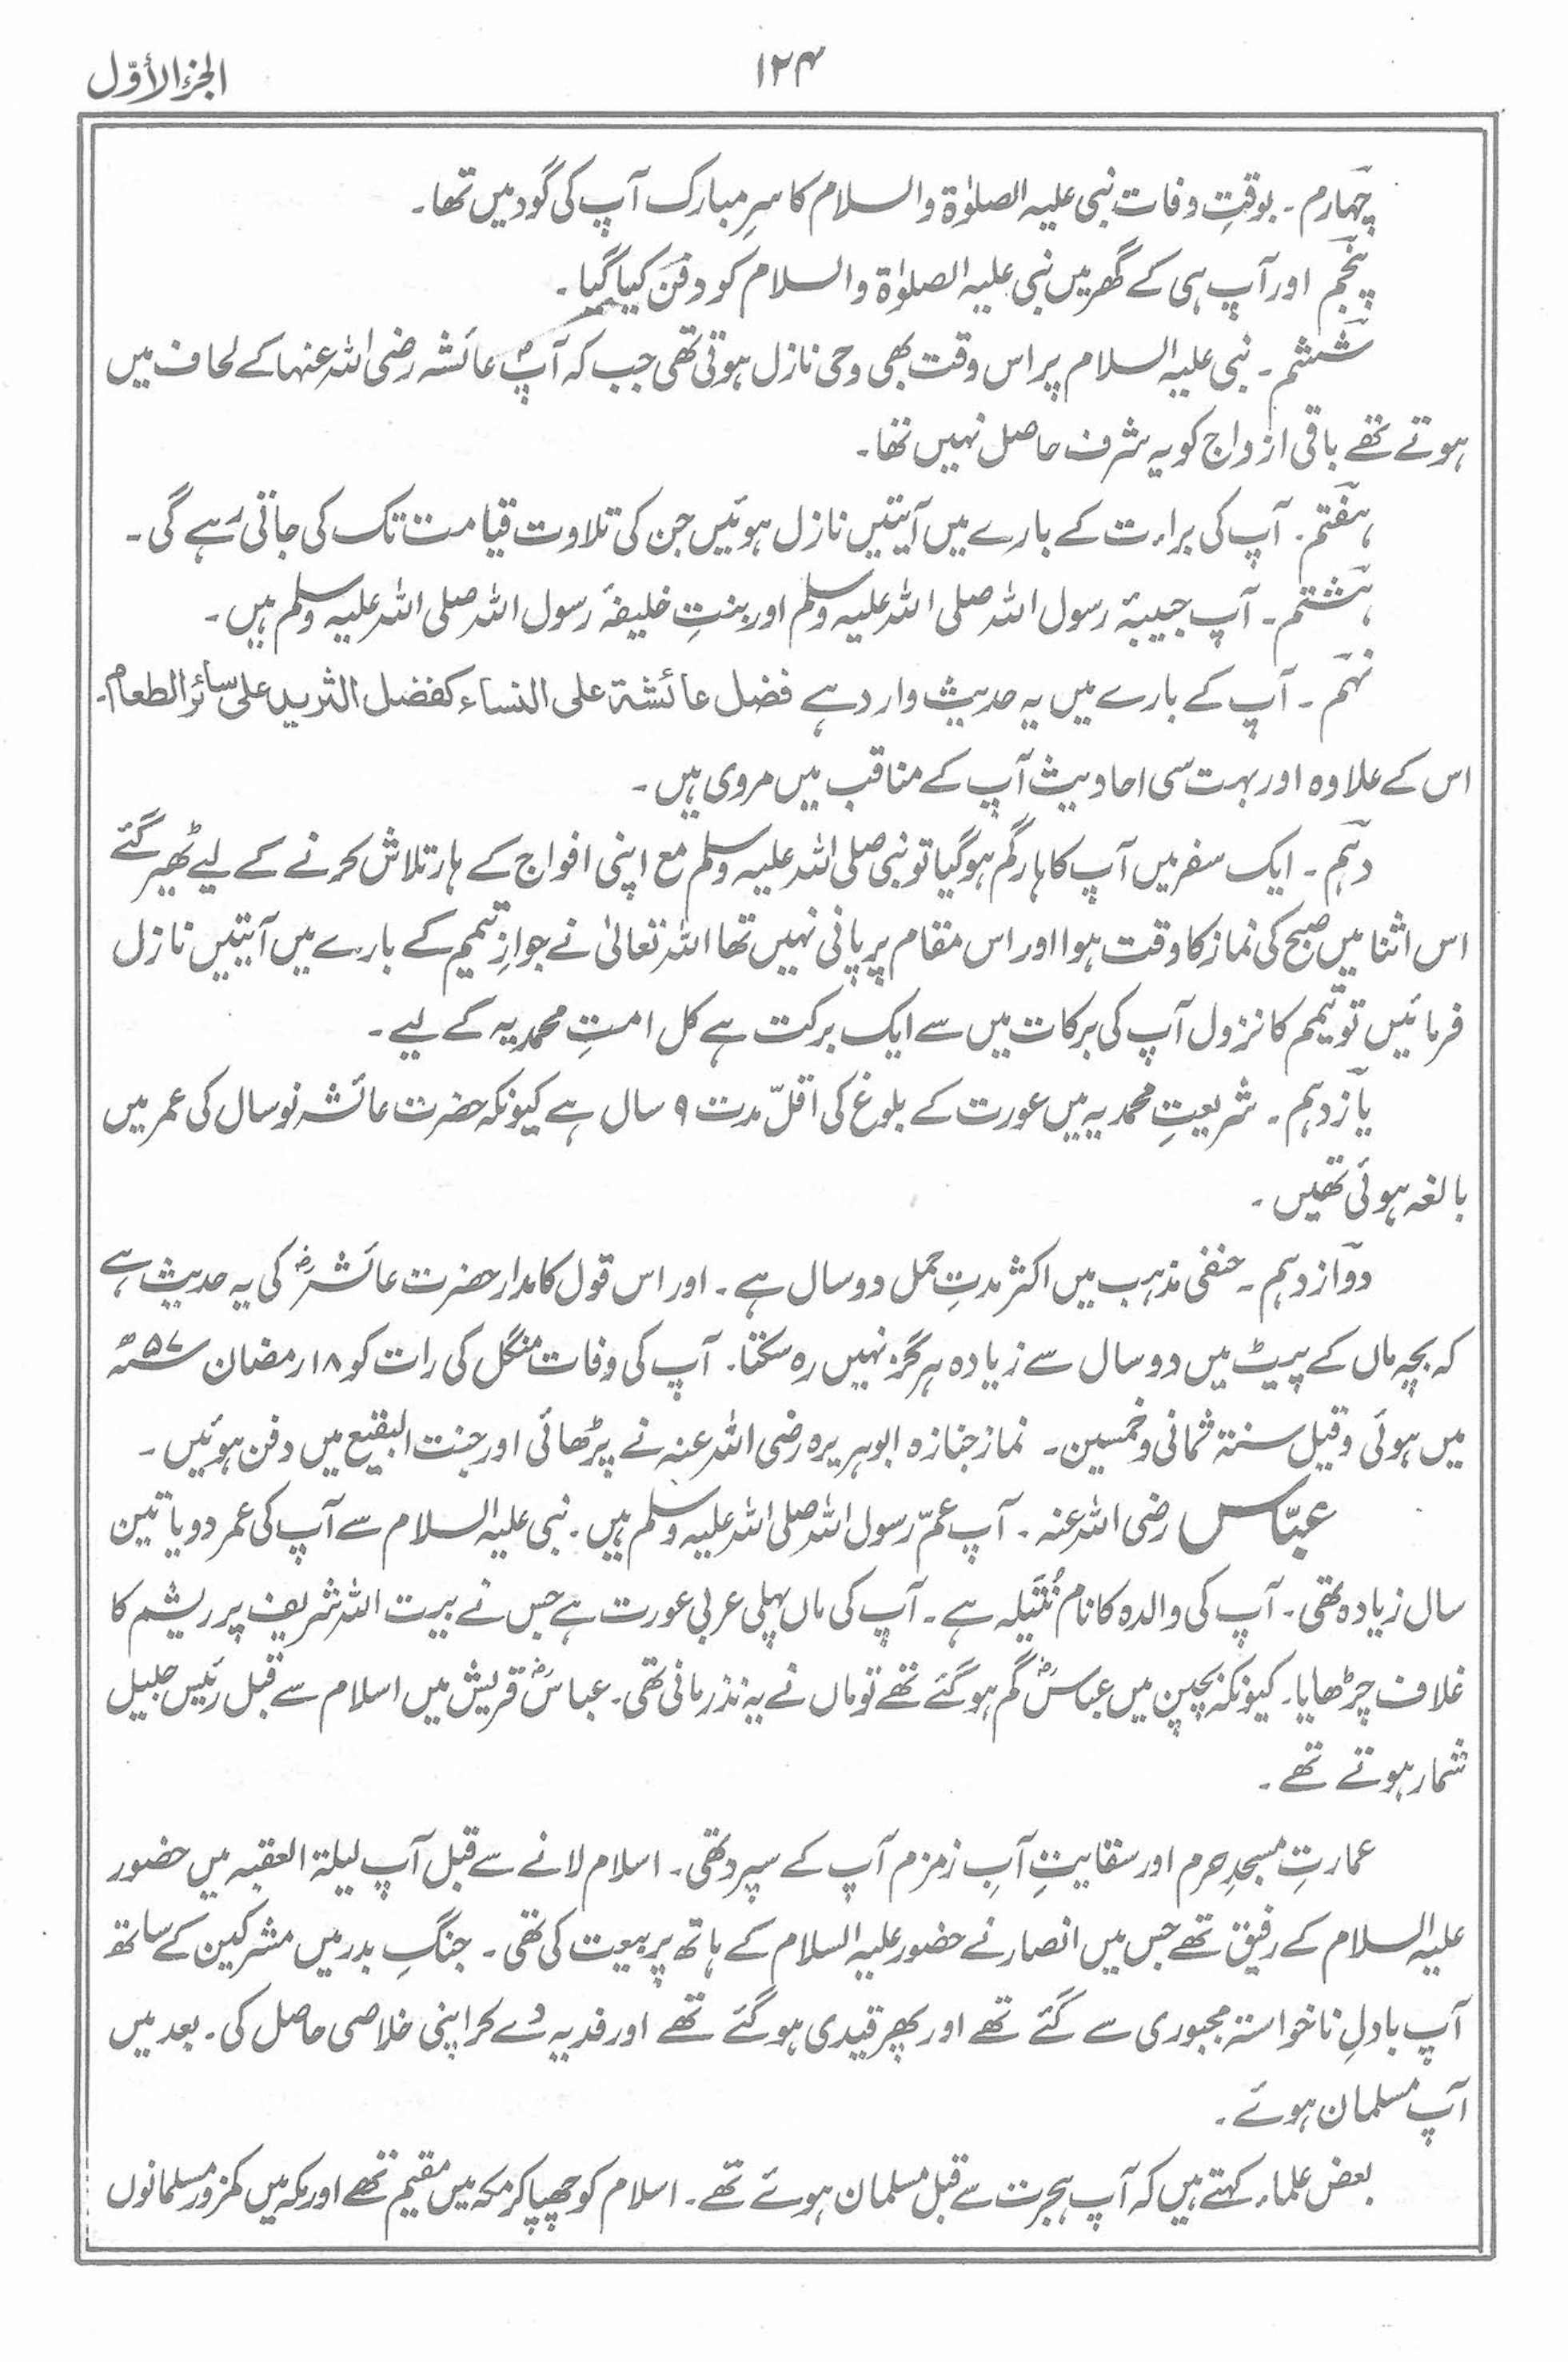 الجزء الأوّل
۱۲۴
چہارم ۔ بوقتِ وفات نبی علیہ الصلوٰۃ والسلام کا سرِ مبارک آپ کی گود میں تھا۔
پنجم اور آپ ہی کے گھر میں نبی علیہ الصلوٰۃ والسلام کو دفن کیا گیا ۔
ششم ۔ نبی علیہ السلام پر اس وقت بھی وحی نازل ہوتی تھی جب کہ آپؐ عائشہ رضی اللہ عنہا کے لحاف میں
ہوتے تھے باقی ازواج کو یہ شرف حاصل نہیں تھا۔
ہفتم ۔ آپ کی براءت کے بارے میں آیتیں نازل ہوئیں جن کی تلاوت قیامت تک کی جاتی رہے گی ۔
ہشتم ۔ آپ حبیبۂ رسول اللہ صلی اللہ علیہ وسلم اور بنتِ خلیفۂ رسول اللہ صلی اللہ علیہ وسلم ہیں ۔
نہم ۔ آپ کے بارے میں یہ حدیث وارد ہے فضل عائشة علی النساء کفضل الثرید علی سائر الطعام۔
اس کے علاوہ اور بہت سی احادیث آپ کے مناقب میں مروی ہیں ۔
دہم ۔ ایک سفر میں آپ کا ہار گم ہوگیا تو نبی صلی اللہ علیہ وسلم مع اپنی افواج کے ہار تلاش کرنے کے لیے ٹھیر گئے
اس اثنا میں صبح کی نماز کا وقت ہوا اور اس مقام پر پانی نہیں تھا اللہ تعالیٰ نے جوازِ تیمم کے بارے میں آیتیں نازل
فرمائیں تو تیمم کا نزول آپ کی برکات میں سے ایک برکت ہے کل امتِ محمدیہ کے لیے ۔
یازدہم ۔ شریعتِ محمدیہ میں عورت کے بلوغ کی اقلّ مدت ۹ سال ہے کیونکہ حضرت عائشہ نو سال کی عمر میں
بالغہ ہوئی تھیں ۔
دوازدہم ۔ حنفی مذہب میں اکثر مدتِ حمل دو سال ہے ۔ اور اس قول کا مدار حضرت عائشہؓ کی یہ حدیث ہے
کہ بچہ ماں کے پیٹ میں دو سال سے زیادہ ہرگز نہیں رہ سکتا۔ آپ کی وفات منگل کی رات کو ۱۸ رمضان ۵۷ھ
میں ہوئی وقیل سنة ثمانی وخمسین ۔ نماز جنازہ ابوہریرہ رضی اللہ عنہ نے پڑھائی اور جنت البقیع میں دفن ہوئیں ۔
عبّاس رضی اللہ عنہ ۔ آپ عمّ رسول اللہ صلی اللہ علیہ وسلم ہیں ۔ نبی علیہ السلام سے آپ کی عمر دو یا تین
سال زیادہ تھی ۔ آپ کی والدہ کا نام نُتَیلہ ہے ۔ آپ کی ماں پہلی عربی عورت ہے جس نے بیت اللہ شریف پر ریشم کا
غلاف چڑھایا۔ کیونکہ بچپن میں عباسؓ گم ہوگئے تھے تو ماں نے یہ نذر مانی تھی۔ عباسؓ قریش میں اسلام سے قبل رئیس جلیل
شمار ہوتے تھے ۔
عمارتِ مسجدِ حرم اور سقایتِ آبِ زمزم آپ کے سپرد تھی ۔ اسلام لانے سے قبل آپ لیلۃ العقبہ میں حضور
علیہ السلام کے رفیق تھے جس میں انصار نے حضور علیہ السلام کے ہاتھ پر بیعت کی تھی ۔ جنگِ بدر میں مشرکین کے ساتھ
آپ بادلِ ناخواستہ مجبوری سے گئے تھے اور پھر قیدی ہوگئے تھے اور فدیہ دے کر اپنی خلاصی حاصل کی ۔ بعد میں
آپ مسلمان ہوئے ۔
بعض علماء کہتے ہیں کہ آپ ہجرت سے قبل مسلمان ہوئے تھے ۔ اسلام کو چھپا کر مکہ میں مقیم تھے اور مکہ میں کمزور مسلمانوں